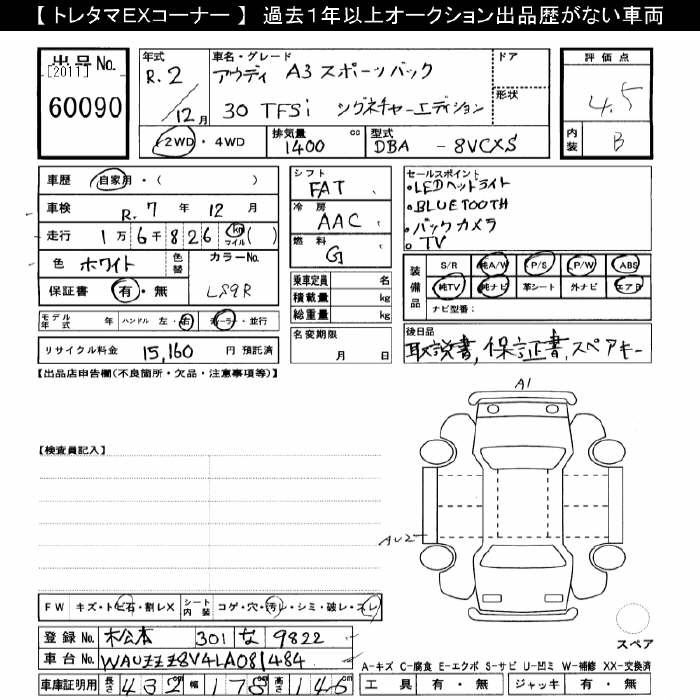 【 トレタマEXコーナー 】 過去1年以上オークション出品歴がない車両
出品No.
[2011]
60090
年式
R.2
/12月
車名・グレード
アウディ A3 スポーツバック
30 TFSi シグネチャーエディション
ドア
形状
2WD・4WD
排気量
1400 cc
型式
DBA - 8VCXS
評価点
4.5
内装
B
車歴 自家用・( )
車検 R. 7 年 12 月
走行 1万 6千 8 2 6 km マイル ( )
色 ホワイト
色替
カラーNo.
LS9R
保証書 有・無
モデル年式 年 ハンドル 左・右 ディーラー・並行
リサイクル料金 15,160 円 預託済
シフト
FAT
冷房
AAC
燃料
G
乗車定員 名
積載量 kg
総重量 kg
名変期限
月 日
セールスポイント
・LEDヘッドライト
・BLUETOOTH
・バックカメラ
・TV
装備品
S/R 純A/W P/S P/W ABS
純TV 純ナビ 革シート 外ナビ エアB
ナビ型番:
後日品
取説書、保証書、スペアキー
【出品店申告欄(不良箇所・欠品・注意事項等)】
【検査員記入】
A1
AU2
スペア
FW キズ・トビ石・割レX
シート内装 コゲ・穴・汚レ・シミ・破レ・スレ
登録No. 松本 301 な 9822
車台No. WAUZZZ8V4LA081484
車庫証明用 長さ 432 cm 幅 178 cm 高さ 145 cm
A-キズ C-腐食 E-エクボ S-サビ U-凹ミ W-補修 XX-交換済
工具 有・無 ジャッキ 有・無